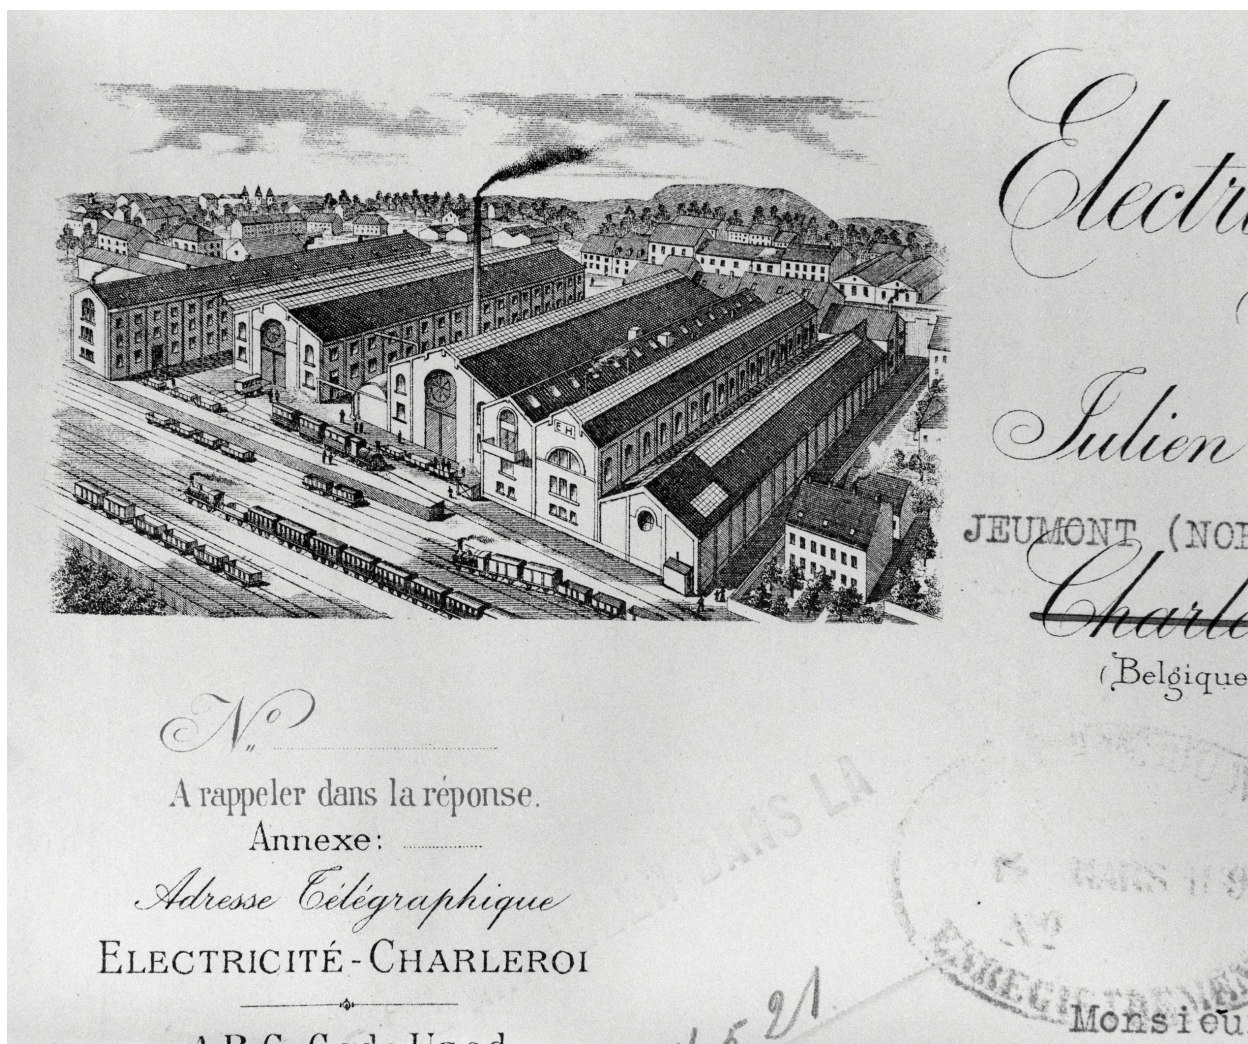 Electri
Julien
JEUMONT (NOR
Charle
(Belgique
E.H.
N°
A rappeler dans la réponse.
Annexe:
Adresse Télégraphique
ELECTRICITÉ-CHARLEROI
A.B.C. Code Used
DANS LA
MARS
ENREGISTREMEN
21
Monsieu